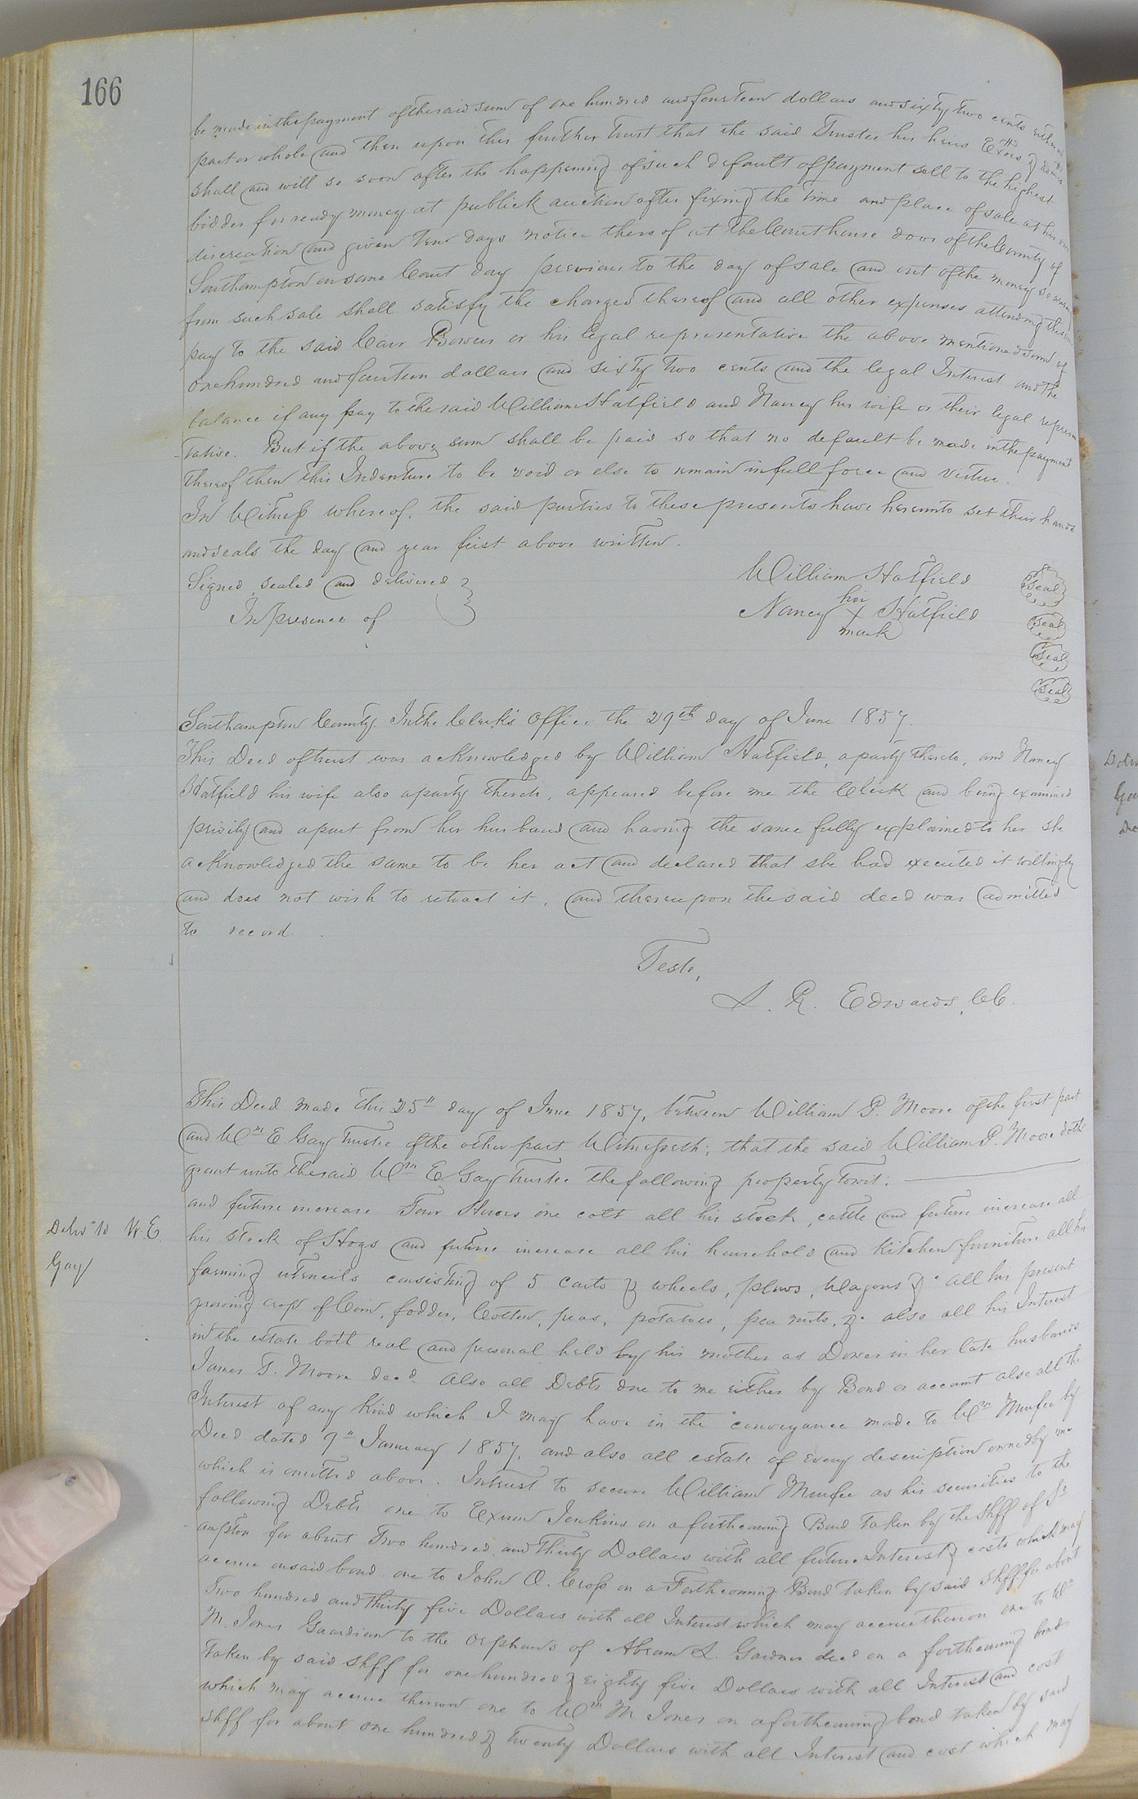 166
be made in the payment of the said sum of one hundred and fourteen dollars and sixty two cents either in
part or whole and then upon this further trust that the said Trustee his heirs Exors &
shall and will so soon after the happening of such default of payment sell to the highest
bidder for ready money at publick auction after fixing the time and place of sale at his own
discreation and given Ten days notice thereof at the Courthouse door of the County of
Southampton on some Court day previous to the day of sale and out of the money
from such sale shall satisfy the charges thereof and all other expenses attending
pay to the said Carr Bowers or his legal representative the above mentioned sum of
One hundred and fourteen dollars and sixty two cents and the legal Interest and the
balance if any pay to the said William Hatfield and Nancy his wife or their legal represen
-tative. But if the above sum shall be paid so that no default be made in the payment
thereof then this Indenture to be void or else to remain in full force and virtue.
In Witness whereof, the said parties to these presents have hereunto set their hands
and seals the day and year first above written.
Signed sealed and delivered
In presence of
William Hatfield Seal
Nancy her X mark Hatfield Seal
Seal
Seal
Southampton County. In the Clerk's Office the 29th day of June 1857
This Deed of trust was acknowledged by William Hatfield, a party thereto, and Nancy
Hatfield his wife also a party thereto, appeared before me the Clerk and being examined
privily and apart from her husband and having the same fully explained to her she
acknowledged the same to be her act and declared that she had executed it willingly
and does not wish to retract it, and thereupon the said deed was admitted
to record.
Teste,
L. R. Edwards, CC.
This Deed made this 25th day of June 1857, between William P. Moore of the first part
and Wm E Gay Trustee of the other part Witnesseth; that the said William P. Moore doth
grant unto the said Wm E Gay Trustee the following property towit:
and future increase Four Horses one colt all his stock, cattle and future increase all
his stock of Hogs and future increase all his household and kitchen furniture all his
farming utensils consisting of 5 carts & wheels, plows, Wagons &c all his present
growing crop of Corn, fodder, Cotton, peas, potatoes, pea nuts, &c also all his Interest
in the estate both real and personal held by his mother as Dower in her late husbands
James T. Moore decd. Also all Debts due to me either by Bond or account also all the
Interest of any Kind which I may have in the conveyance made to Wm Murfee by
Deed dated 9th January 1857, and also all estate of every description owned by me
which is omitted above. Intrust to secure William Murfee as his securities to the
following Debts one to Exum Jenkins on a forthcoming Bond taken by the Shff of Sth
ampton for about Two hundred and Thirty Dollars with all future Interest & costs which may
accrue on said bond one to John Q. Cross on a Forthcoming Bond taken by said Shff for about
Two hundred and thirty five Dollars with all Interest which may accrue thereon one to Wm
M. Jones Guardian to the Orphans of Abram L. Gardner decd on a forthcoming bond
taken by said Shff for one hundred & eighty five Dollars with all Interest and cost
which may accrue thereon one to Wm M Jones on a forthcoming bond taken by said
Shff for about one hundred & Twenty Dollars with all Interest and cost which may
Delvd to W. E.
Gay